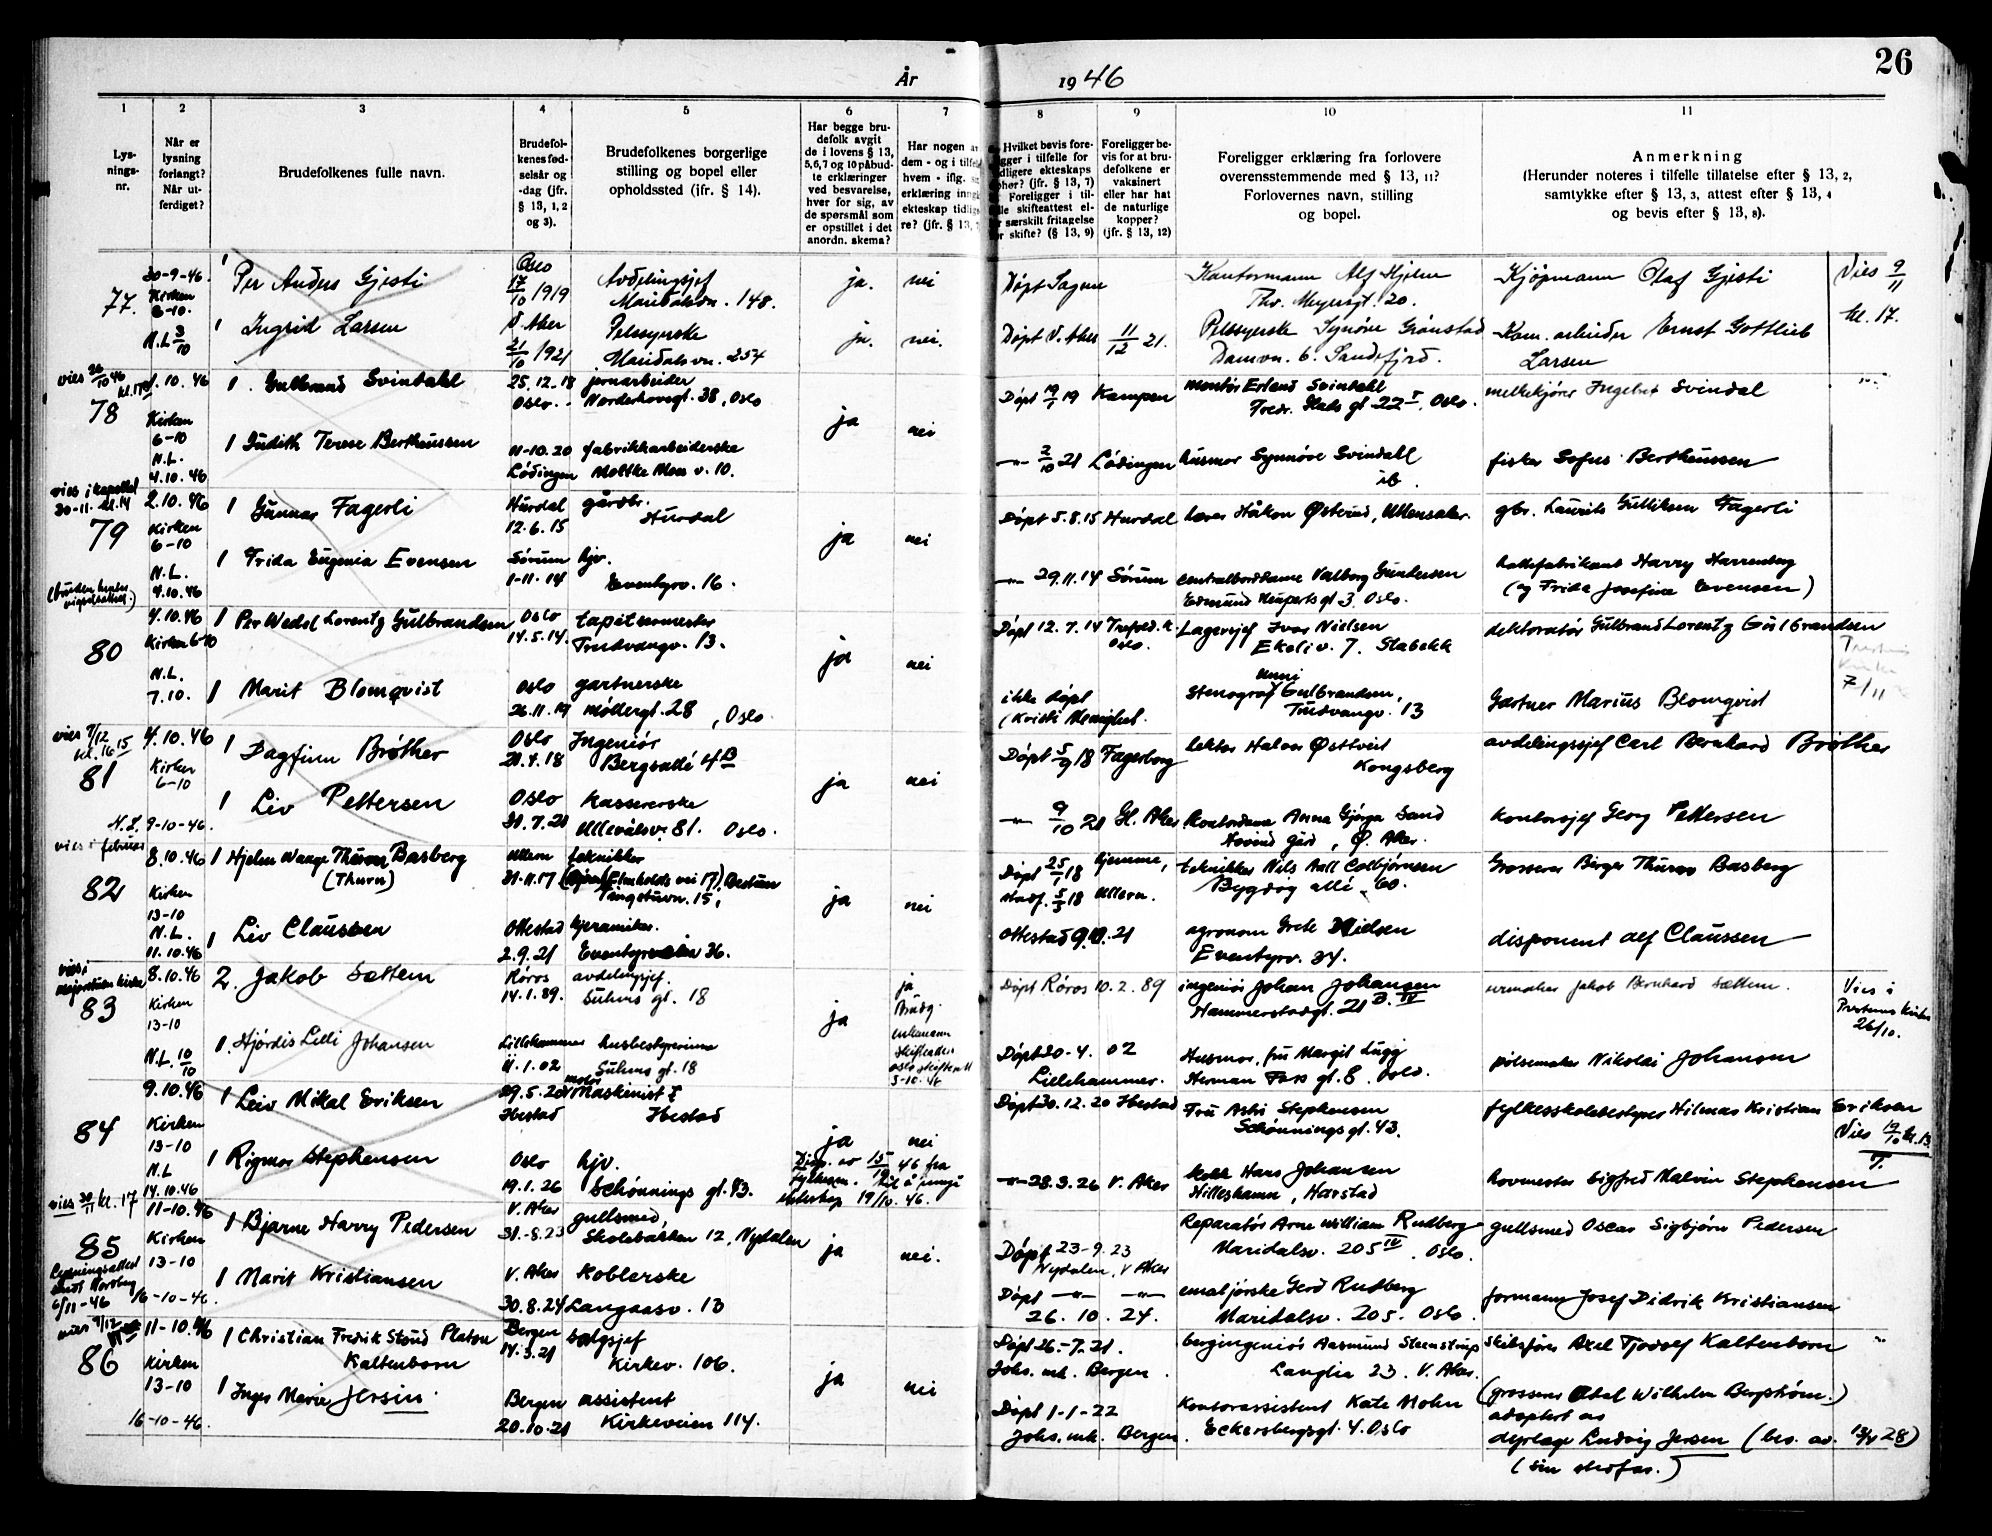 26
År 1946
1 2 3 4 5 6 7 8 9 10 11
Lys-
nings-
nr.
Når er
lysning
forlangt?
Når ut-
ferdiget?
Brudefolkenes fulle navn.
Brudefol-
kenes fød-
selsår og
-dag (jfr.
§ 13, 1, 2
og 3).
Brudefolkenes borgerlige
stilling og bopel eller
opholdssted (jfr. § 14).
Har begge bru-
defolk avgit
de i lovens § 13,
5,6,7 og 10 påbud-
te erklæringer
ved besvarelse,
hver for sig, av
de spørsmål som
er opstillet i det
anordn. skema?
Har nogen av
dem - og i tilfel
hvem - iflg. si
erklæring inngå
ekteskap tidlig
re? (jfr. § 13,
Hvilket bevis fore-
ligger i tilfelle for
ophør? (jfr. § 13, 7)
Foreligger i til-
skifteattest el-
særskilt fritagelse
skifte? (§ 13, 9)
Foreligger be-
vis for at bru-
defolkene er
vaksinert
eller har hat
de naturlige
kopper?
(jfr. § 13, 12)
Foreligger erklæring fra forlovere
overensstemmende med § 13, 11?
Forlovernes navn, stilling
og bopel.
Anmerkning
(Herunder noteres i tilfelle tillatelse efter § 13, 2,
samtykke efter § 13, 3, attest efter § 13, 4
og bevis efter § 13, 8).
77. 30-9-46. Kirken 6-10. N.L. 3/10
1 Per Anders Gjesti Oslo 17/10 1919 Avdelingsjef Maridalsvn. 148. ja. nei Døpt Sagene Kontormann Alf Hjelm Thv. Meyersgt. 20. Kjøpmann Olaf Gjesti Vies 9/11 kl. 17.
1 Ingrid Larsen V. Aker 21/10 1921 Pelssyerske Maridalsvn. 254 ja. nei. Døpt V. Aker 11/12 21. Pelssyerske Synøve Grønstad Damvn. 6. Sandefjord. Kom. arbeider Ernst Gottlieb Larsen
vies 26/10 46
78 1.10.46 Kirken 6-10 N.L. 4.10.46
1. Gulbrand Svindahl 25.12.18 Oslo. jernarbeider Norderhovsgt. 38, Oslo ja nei Døpt 19/1 19 Kampen montør Erland Svindahl Fredr. Stabs gt 22 I. Oslo. melkekjører Ingebret Svindal
1 Judith Terese Bertheussen 11-10.20 Lødingen fabrikkarbeiderske Moltke Moes v. 10. -"- 2/10 21 Lødingen husmor Synnøve Svindahl ib. fisker Sofus Bertheussen
vies i kapellet 30-11. kl. 14
79 2.10.46 Kirken 6-10 N.L. 4.10.46
1 Gunnar Fagerli Hurdal 12.6.15 gårdbr. Hurdal ja nei Døpt 5.8.15 Hurdal lærer Håkon Østerud, Ullensaker. gbr. Laurits Gulliksen Fagerli
1 Frida Eugenia Evensen Sørum 1-11.14 hjv. Eventyrv. 16. -"- 29.11.14 Sørum centralborddame Valborg Gundersen Edmund Neuperts gt 3, Oslo. hattefabrikant Harry Harrenberg (og Frida Josefine Evensen)
80 4.10.46 Kirken 6-10 N.L. 7.10.
1 Per Wedel Lorentz Gulbrandsen Oslo 14.5.14. tapetserermester Trudvangv. 13. ja nei Døpt 12.7.14 Trefold.k. Oslo. Lagersjef Ivar Nielsen Ekeliv. 7. Stabekk dekoratør Gulbrand Lorentz Gulbrandsen
1 Marit Blomqvist Oslo 26.11.19 gartnerske Møllergt. 28, Oslo. ikke døpt (Kristi Menighet. stenograf Unni Gulbrandsen, Trudvangv. 13 Gartner Marius Blomqvist 7/11
vies 7/12 kl. 16 15
81 4.10.46 Kirken 6-10 N.L. 9-10-46.
1 Dagfinn Brøther Oslo 21.4.18 Ingeniør Bergsallé 4 B ja nei Døpt 5/9 18 Fagerborg lektor Halvor Østtveit Kongsberg avdelingssjef Carl Bernhard Brøther
1 Liv Pettersen Oslo 31.7.21 Kassererske Ullevålsv. 81. Oslo. -"- 9/10 21 Gl. Aker kontordame Anna Gjørga Sand Hovind gård, Ø. Aker. kontorsjef Georg Pettersen
vies i februar
82 8.10.46 Kirken 13-10 N.L. 11.10.46
1 Hjelm Waage Thurn Basberg (Thurn) Ullern 31-11.17 tekniker Tingstuvn. 15, Bestum ja nei Døpt 25/1 18 hjemme, stadf. 5/3 18 Ullern. tekniker Nils Aall Colbjørnsen Bygdøy allé 60. Grosserer Birger Thurn Basberg
1 Liv Claussen Ottestad 2.9.21 keramiker. Eventyrveien 36. Ottestad 9.10.21 agronom Grete Nielsen Eventyrv. 34. disponent Alf Claussen
vies i Majorstuen kirke
83 8.10.46 Kirken 13-10 N.L. 10/10
2. Jakob Sættem Røros 14.1.89. avdelingsjef. Suhms gt. 18 ja ja Brudg. enkemann skifteattest Oslo skifterett 3-10.46 Døpt Røros 10.2.89 ingeniør Johan Johansen Hammerstadgt. 21 B. IV urmaker Jakob Bernhard Sættem. Vies i Kirke 26/10.
1. Hjørdis Lilli Johansen Lillehammer 11.1.02 husbestyrerinne Suhms gt. 18 Døpt 20-4. 02 Lillehammer. Husmor, fru Margit Lugg Herman Foss gt. 8. Oslo. pølsemaker Nikolai Johansen
84 9.10.46 Kirken 13-10 N.L. 14.10.46
1 Leiv Mikal Eriksen 29.5.20 Ibestad motor Maskinist Ibestad ja nei Døpt 30.12.20 Ibestad Fru Astri Stephensen Schønnings gt. 43. fylkesskolebestyrer Hilmar Kristian Eriksen Vies 19/10 kl. 13
1 Rigmor Stephensen Oslo 19.1.26 hjv. Schønnings gt. 43. Disp. av 15/10 46 fra Fylkesm. til å inngå ekteskap 19/10.46. -"- 28.3.26 V. Aker kokk Hans Johansen Hilleshamn, Harstad hovmester Sigfred Malvin Stephensen
vies 30/11 kl. 17
85 11-10.46 Kirken 13-10 16-10-46.
1 Bjarne Harry Pedersen V. Aker 31.-8.23 gullsmed Skolebakken 12, Nydalen ja nei. Døpt 23-9.23 Nydalen, V Aker Reparatør Arne William Rudberg Maridalsv. 205 IV. Oslo. gullsmed Oscar Sigbjørn Pedersen
Lysningsattest sendt Nordberg 6/11-46
1 Marit Kristiansen V. Aker 30.8.24 Koblerske Langaasv. 13 Døpt -"- -"- 26.10.24. emaljørske Gerd Rudberg Maridalsv. 205. Oslo. formann Josef Didrik Kristiansen
vies 7/12
86 11-10.46 Kirken 13-10 16-10-46.
1 Christian Fredrik Stoud Platou Kaltenborn Bergen 14.3.21 salgsjef Kirkev. 106. ja nei Døpt 26.-7.21. Johs. mk. Bergen. bergingeniør Aasmund Steenstrup Langlia 23. V. Aker. skibsfører Axel Tjodolf Kaltenborn
1 Inger Marie Jersin Bergen 20.10.21 assistent Kirkeveien 114. Døpt 1-1-22 Johs. mk. Bergen. Kontorassistent Kate Mohn Eckersbergsgt. 4. Oslo (grosserer Abel Wilhelm Bergstrøm.) adoptert av dyrlege Ludvig Jersin (bev. av 13/4 28) (sin stefar.)